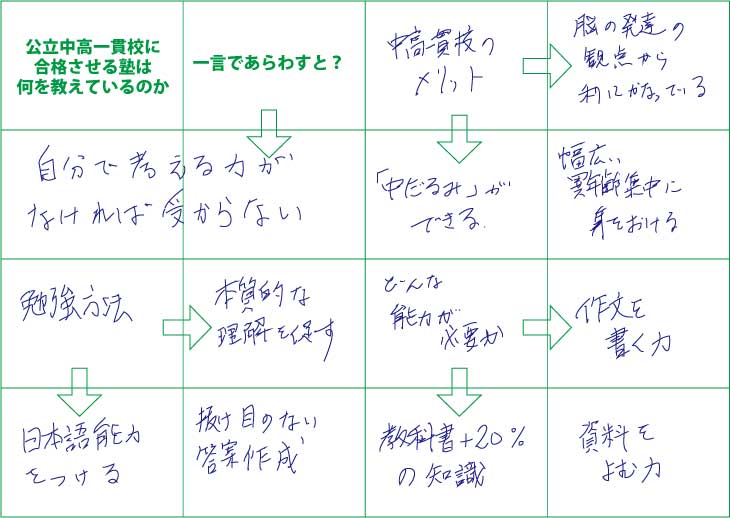 公立中高一貫校に
合格させる塾は
何を教えているのか
一言であらわすと？
自分で考える力が
なければ受からない
中高一貫技の
メリット
脳の発達の
観点から
利にかなっている
「中だるみ」が
できる.
幅広い
異年齢集中に
身をおける
勉強方法
本質的な
理解を促す
日本語能力
をつける
抜け目のない
答案作成
どんな
能力が
必要か
作文を
書く力
教科書+20%
の知識
資料を
よむ力